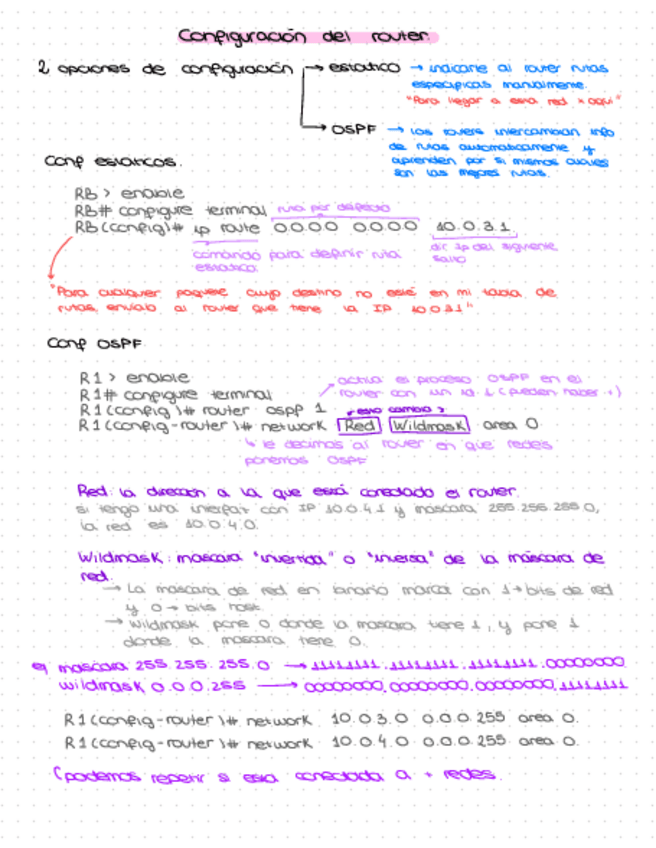 Configuración del router.
2 opciones de configuración → estático → indicarle al router rutas
específicas manualmente.
"Para llegar a esta red x aquí"
→ OSPF → los routers intercambian info
de rutas automáticamente y
aprenden por sí mismos cuáles
son las mejores rutas.
Conf estáticos.
RB > enable
RB# configure terminal ruta por defecto
RB(config)# ip route 0.0.0.0 0.0.0.0 10.0.3.1
comando para definir ruta
estática.
dir ip del siguiente
salto
"Para cualquier paquete cuyo destino no esté en mi tabla de
rutas, envíalo al router que tiene la IP 10.0.3.1"
Conf OSPF
R1 > enable
R1# configure terminal
R1(config)# router ospf 1
activa el proceso OSPF en el
router con un id 1 (pueden haber +)
esto cambia
R1(config-router)# network Red Wildmask area 0.
↳ le decimos al router en que redes
ponemos OSPF
Red: la dirección a la que está conectado el router.
si tengo una interfaz con IP 10.0.4.1 y máscara 255.255.255.0,
la red es 10.0.4.0.
Wildmask: máscara "invertida" o "inversa" de la máscara de
red.
→ La máscara de red en binario marca con 1→bits de red
y 0→ bits host
→ wildmask pone 0 donde la máscara tiene 1, y pone 1
donde la máscara tiene 0.
ej máscara 255.255.255.0 → 11111111.11111111.11111111.00000000
wildmask 0.0.0.255 → 00000000.00000000.00000000.11111111
R1(config-router)# network 10.0.3.0 0.0.0.255 area 0.
R1(config-router)# network 10.0.4.0 0.0.0.255 area 0.
(podemos repetir si está conectada a + redes.